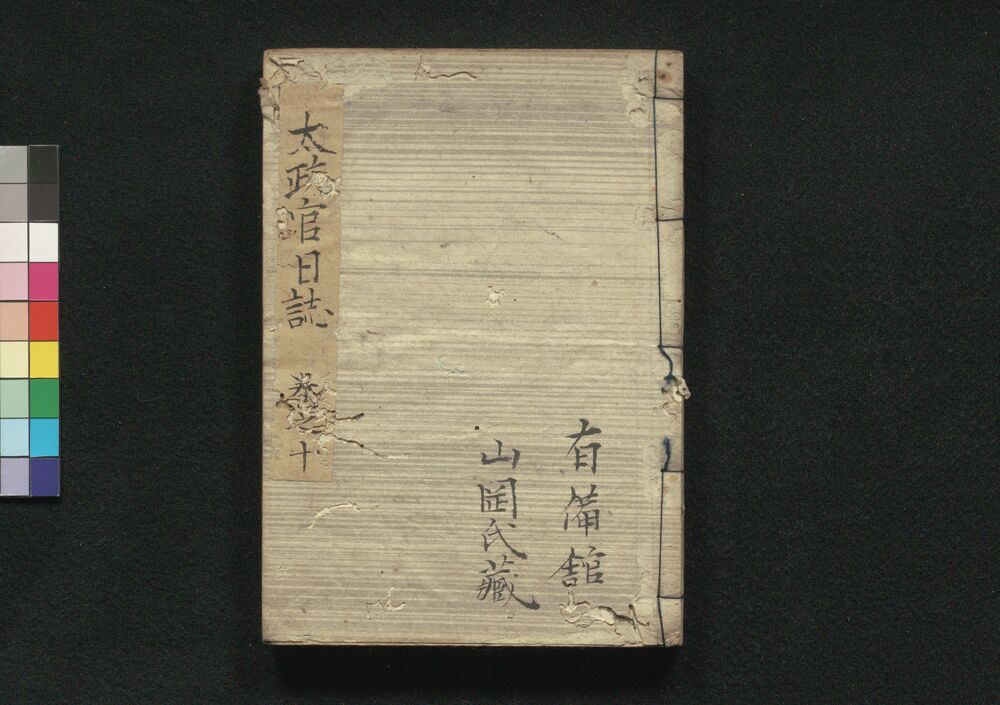 有備舘
山岡氏藏
太政官日誌 巻之十